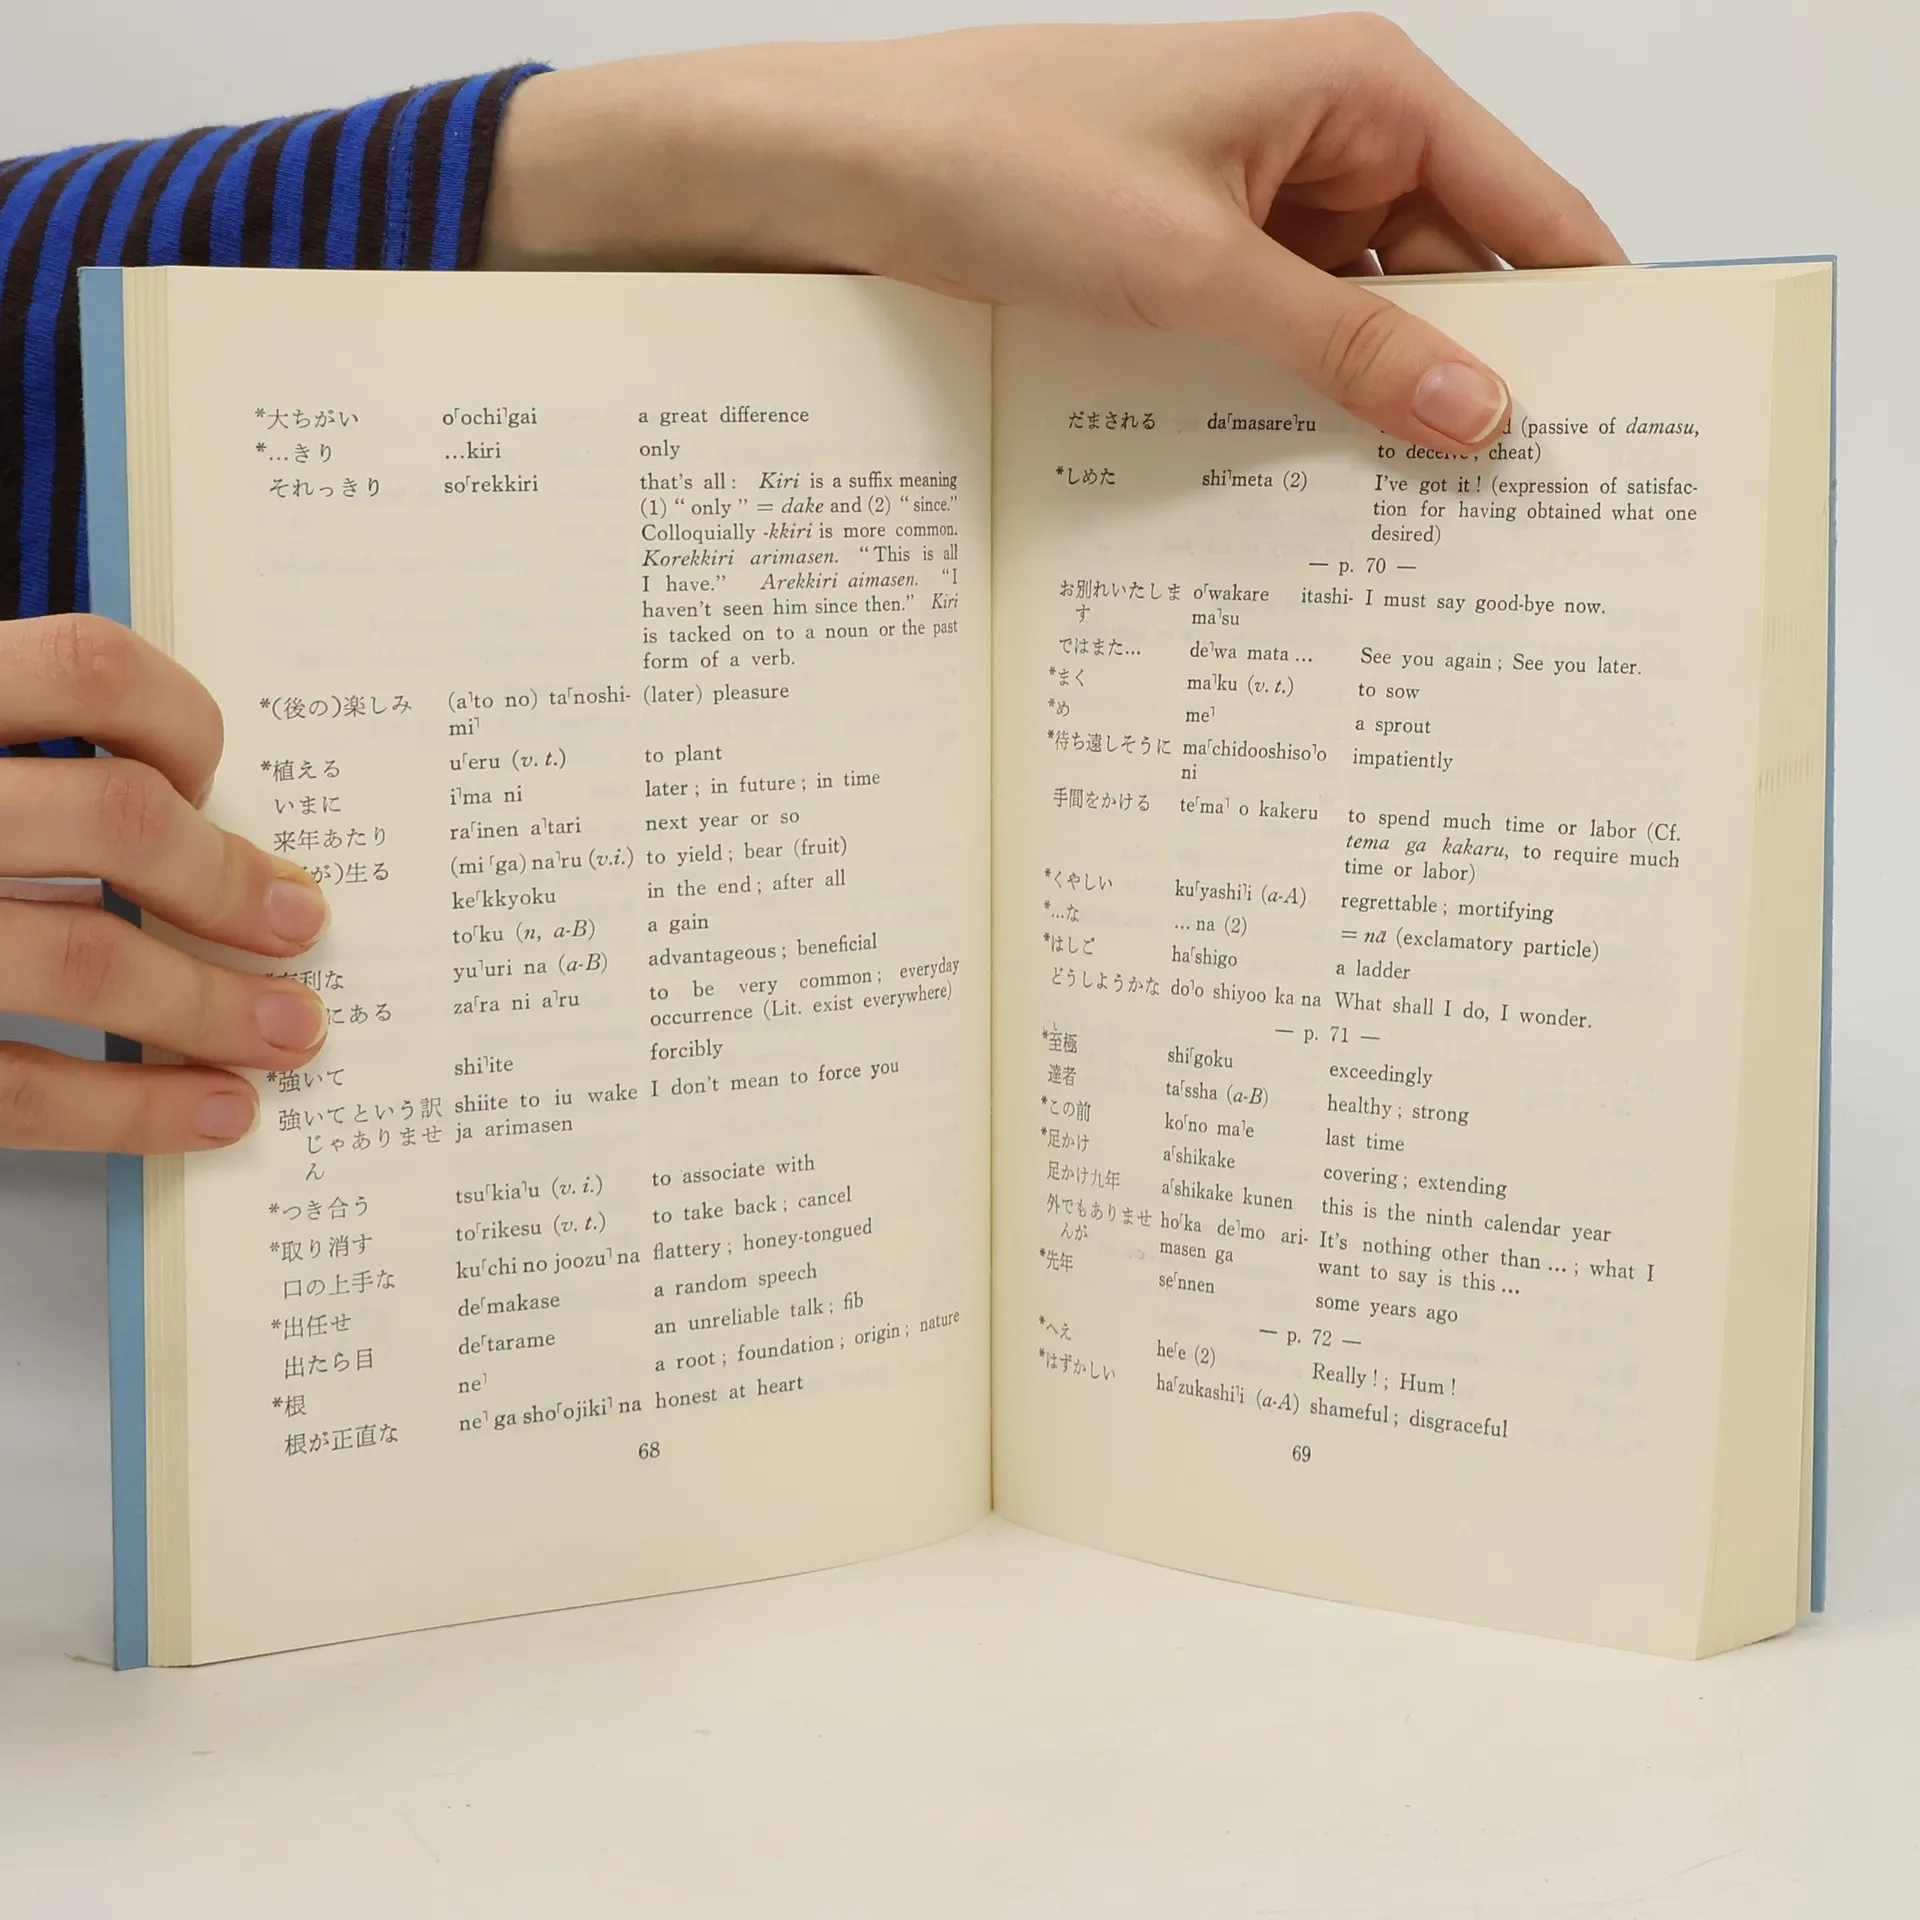 *大ちがい o⌈ochi⌉gai a great difference
*…きり …kiri only
それっきり so⌈rekkiri that's all : Kiri is a suffix meaning
(1) “ only ” = dake and (2) “ since.”
Colloquially -kkiri is more common.
Korekkiri arimasen. “ This is all
I have.” Arekkiri aimasen. “ I
haven't seen him since then.” Kiri
is tacked on to a noun or the past
form of a verb.
*(後の)楽しみ (a⌉to no) ta⌈noshi- (later) pleasure
mi⌉
*植える u⌈eru (v. t.) to plant
いまに i⌉ma ni later ; in future ; in time
来年あたり ra⌈inen a⌉tari next year or so
が)生る (mi ⌈ga) na⌉ru (v.i.) to yield ; bear (fruit)
ke⌈kkyoku in the end ; after all
to⌉ku (n, a-B) a gain
利な yu⌉uri na (a-B) advantageous ; beneficial
にある za⌈ra ni a⌉ru to be very common ; everyday
occurrence (Lit. exist everywhere)
*強いて shi⌉ite forcibly
強いてという訳 shiite to iu wake I don't mean to force you
じゃありませ ja arimasen
ん
*つき合う tsu⌈kia⌉u (v. i.) to associate with
*取り消す to⌈rikesu (v. t.) to take back ; cancel
口の上手な ku⌈chi no joozu⌉ na flattery ; honey-tongued
*出任せ de⌈makase a random speech
出たら目 de⌈tarame an unreliable talk ; fib
*根 ne⌉ a root ; foundation ; origin ; nature
根が正直な ne⌉ ga sho⌈ojiki⌉ na honest at heart
68
だまされる da⌈masare⌉ru (passive of damasu,
to deceive, cheat)
*しめた shi⌉meta (2) I've got it ! (expression of satisfac-
tion for having obtained what one
desired)
— p. 70 —
お別れいたしま o⌈wakare itashi- I must say good-bye now.
す ma⌉su
ではまた… de⌉wa mata … See you again ; See you later.
*まく ma⌉ku (v. t.) to sow
*め me⌉ a sprout
*待ち遠しそうに ma⌈chidooshiso⌉o impatiently
ni
手間をかける te⌈ma⌉ o kakeru to spend much time or labor (Cf.
tema ga kakaru, to require much
time or labor)
*くやしい ku⌈yashi⌉i (a-A) regrettable ; mortifying
*…な … na (2) = nā (exclamatory particle)
*はしご ha⌈shigo a ladder
どうしようかな do⌉o shiyoo ka na What shall I do, I wonder.
— p. 71 —
*至極 shi⌈goku exceedingly
達者 ta⌈ssha (a-B) healthy ; strong
*この前 ko⌈no ma⌉e last time
*足かけ a⌈shikake covering ; extending
足かけ九年 a⌈shikake kunen this is the ninth calendar year
外でもありませ ho⌈ka de⌉mo ari- It's nothing other than … ; what I
んが masen ga want to say is this …
*先年 se⌈nnen some years ago
— p. 72 —
*へえ he⌈e (2) Really ! ; Hum !
*はずかしい ha⌈zukashi⌉i (a-A) shameful ; disgraceful
69